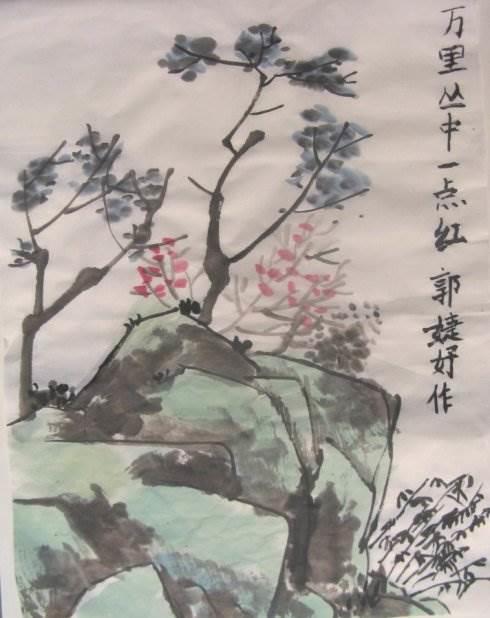 万里丛中一点红 郭婕妤作